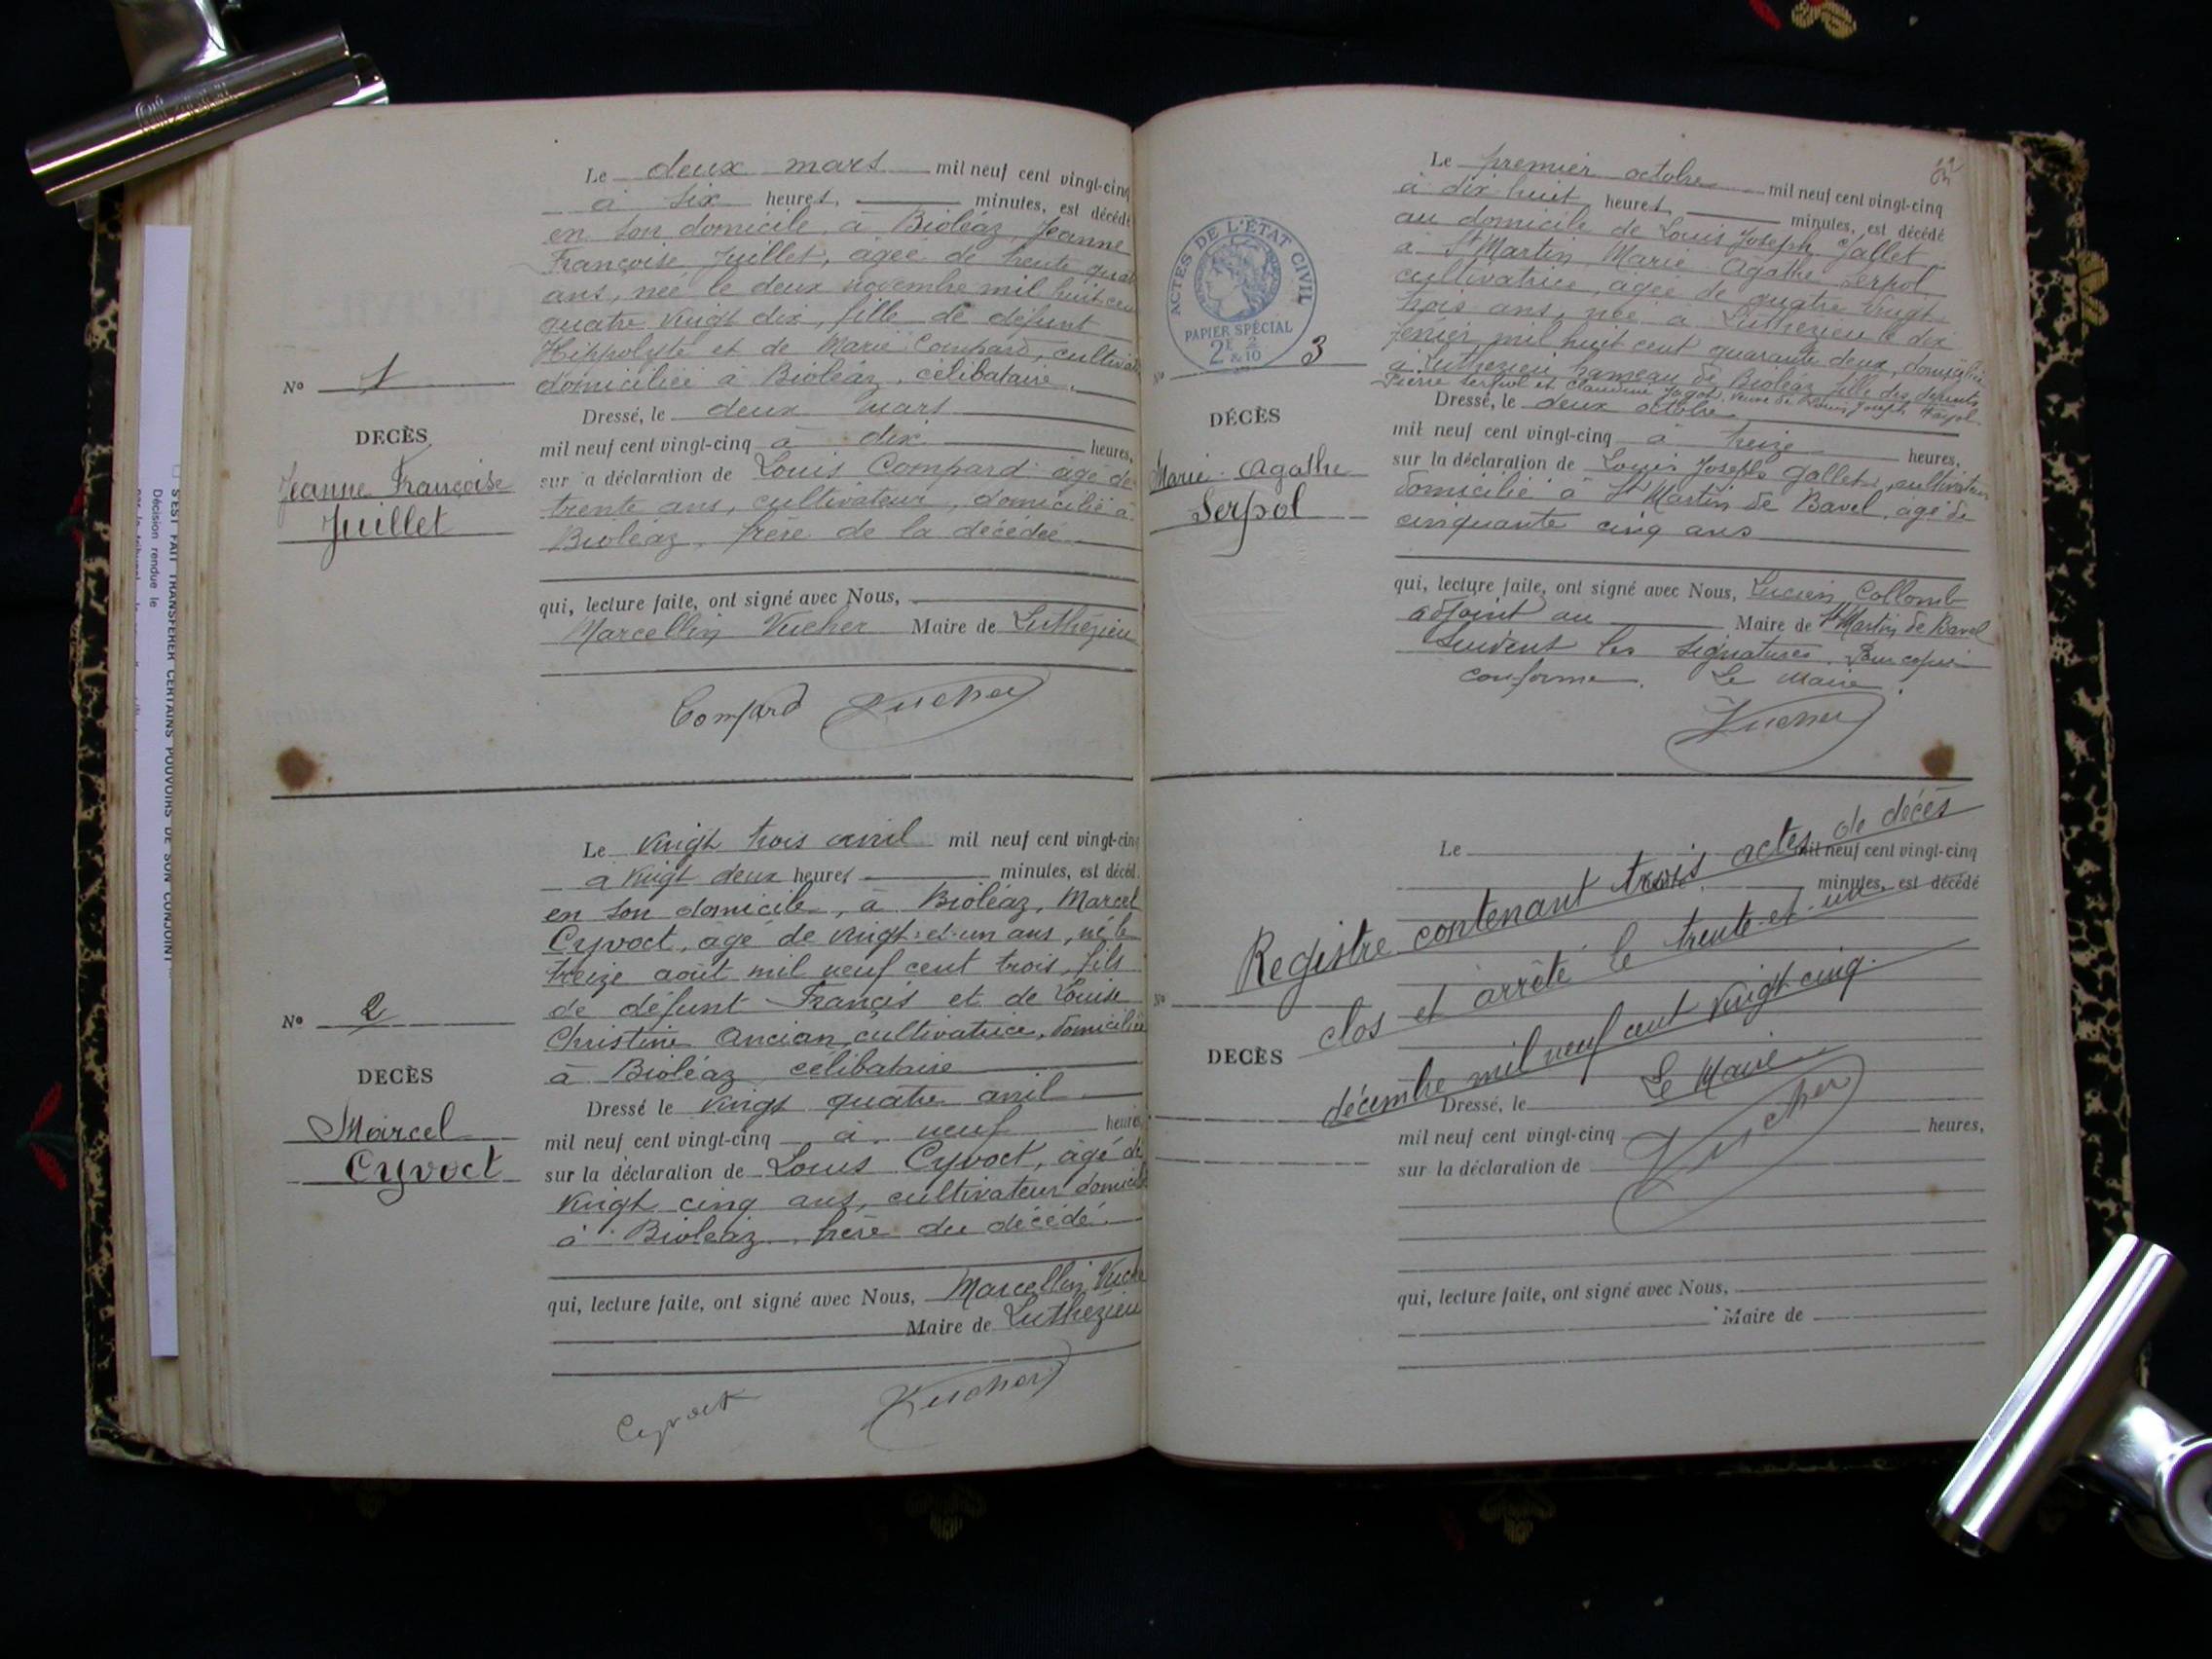 Le deux mars mil neuf cent vingt-cinq
à six heures, minutes, est décédé
en son domicile, à Bioléaz, Jeanne
Françoise Juillet, agée de trente quatre
ans, née le deux novembre mil huit cent
quatre vingt dix, fille de défunt
Hippolyte et de Marie Compard, cultivat
domiciliée à Bioléaz, célibataire.
No 1
DECÈS
Jeanne Françoise
Juillet
Dressé, le deux mars
mil neuf cent vingt-cinq à dix heures,
sur a déclaration de Louis Compard âgé de
trente ans, cultivateur, domicilié à
Bioléaz, frère de la décédée
qui, lecture faite, ont signé avec Nous,
Marcellin Vucher Maire de Luthézieu
Compard Vucher
Le vingt trois avril mil neuf cent vingt-cinq
à vingt deux heures minutes, est décéd
en son domicile, à Bioléaz, Marcel
Cyvoct, âgé de vingt-et-un ans, né le
treize août mil neuf cent trois, fils
de défunt Francis et de Louise
Christine Ancian, cultivatrice, domiciliée
à Bioléaz célibataire
No 2
DECÈS
Marcel
Cyvoct
Dressé le vingt quatre avril
mil neuf cent vingt-cinq à neuf heures
sur la déclaration de Louis Cyvoct, âgé de
vingt cinq ans, cultivateur domicilié
à Bioléaz, frère du décédé.
qui, lecture faite, ont signé avec Nous, Marcellin Vuche
Maire de Luthézieu
Cyvoct Vucher
S'EST FAIT TRANSFÉRER CERTAINS POUVOIRS DE SON CONJOINT
Décision rendue le
32
Le premier octobre mil neuf cent vingt-cinq
à dix huit heures, minutes, est décédé
au domicile de Louis Joseph Gallet
à St Martin, Marie Agathe Serpol
cultivatrice, agée de quatre vingt
trois ans, née à Luthézieu le dix
février mil huit cent quarante deux, domiciliée
à Luthézieu, hameau de Bioléaz fille des défunts
Pierre Serpol et Claudine Jagot, veuve de Louis Joseph
ACTES DE L'ÉTAT CIVIL
PAPIER SPÉCIAL
2F 2/10 & 10
No 3
DÉCÈS
Marie Agathe
Serpol
Dressé, le deux octobre
mil neuf cent vingt-cinq à treize heures,
sur la déclaration de Louis Joseph Gallet, cultivateur
domicilié à St Martin de Bavel, âgé de
cinquante cinq ans
qui, lecture faite, ont signé avec Nous, Lucien Collomb
adjoint au Maire de St Martin de Bavel
Suivent les signatures. Pour copie
conforme. Le Maire.
Vucher
Le mil neuf cent vingt-cinq
minutes, est décédé
Registre contenant trois actes de décès
clos et arrêté le trente-et-un
décembre mil neuf cent vingt cinq.
Le Maire
Vucher
No
DECÈS
Dressé, le
mil neuf cent vingt-cinq heures,
sur la déclaration de
qui, lecture faite, ont signé avec Nous,
Maire de